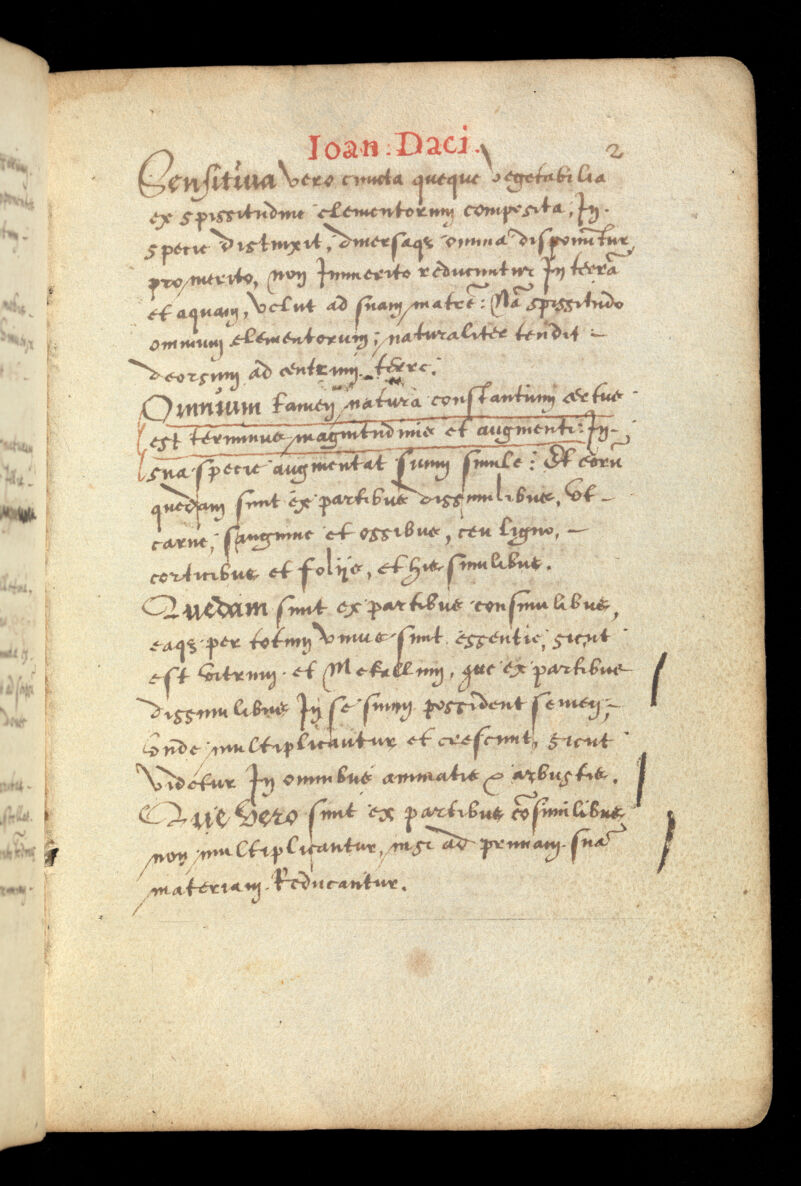 Ioan: Daci.
2
Sensitiua vero cuncta queque vegetabilia
ex spissitudine elementorum composita, In
specie distinxit, diuersaqȝ omnia disponūtur
pro merito, non Immerito reducuntur In terrā
et aquam, velut ad suam matrē: Nā spissitudo
omnium elementorum, naturaliter tendit
deorsum ad centrum terre.
Omnium tamen natura constantium certus
est terminus magnitudinis et augmenti: In
sua specie augmentat suum simile: Et eorū
quedam sunt ex partibus dissimilibus, Vt
carne, sanguine et ossibus, ceu ligno,
corticibus et folijs, et his similibus.
Quedam sunt ex partibus consimilibus,
eaqȝ per totum vnius sunt essentie, sicut
est vitrum et Metallum, que ex partibus
dissimilibus In se suum possident semen,
vnde multiplicantur et crescunt, sicut
videtur In omnibus animatis & arbustis.
Que vero sunt ex partibus cōsimilibus
non multiplicantur, nisi ad primam suā
materiam Reducantur.